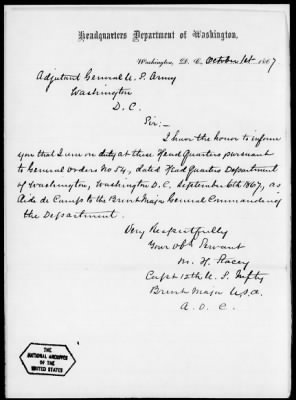 Headquarters Department of Washington,
Washington, D. C., October 1st 1867
Adjutant General U. S. Army
Washington
D. C.
Sir:-
I have the honor to inform
you that I am on duty at these Head Quarters pursuant
to General Orders No 54, dated Head Quarters Department
of Washington, Washington D. C. September 6th 1867, as
Aide de Camp to the Brevet Major General Commanding
the Department.
Very Respectfully
Your Obt Servant
M. H. Stacey
Capt 12th U. S. Infty
Brevet Major U.S.A.
A. D. C.
THE
NATIONAL ARCHIVES
OF THE
UNITED STATES